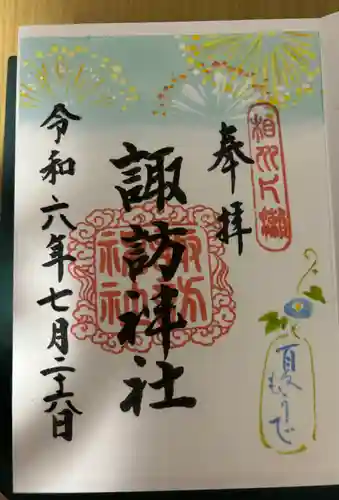 奉拝
相州片瀬
諏訪神社
諏訪神社
令和六年七月二十六日
夏
もうで